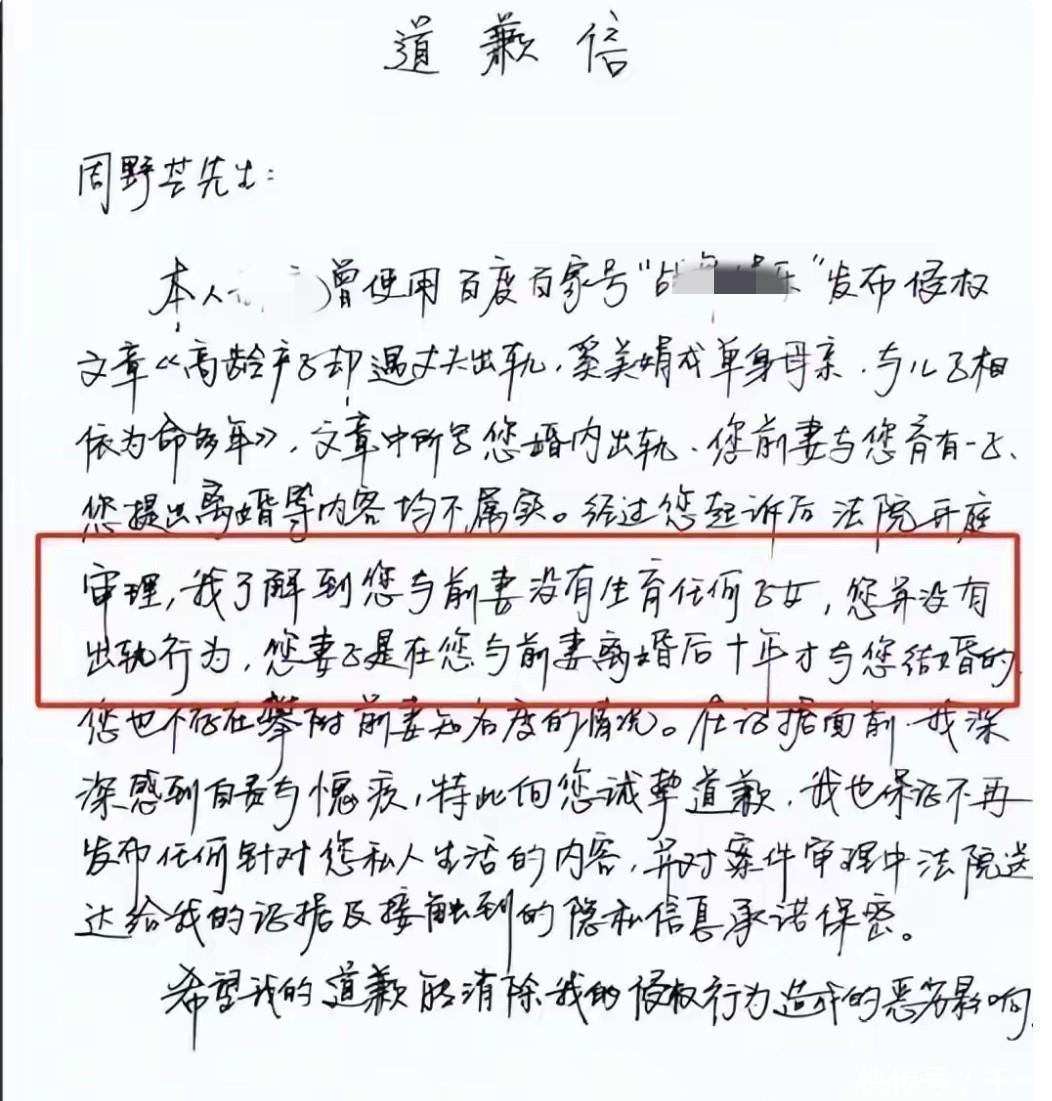 道歉信
周野芒先生:
本人 曾使用百度百家号“战 乐”发布侵权
文章《高龄产子却遇丈夫出轨,奚美娟成单身母亲,与儿子相
依为命多年》,文章中所写您婚内出轨、您前妻与您育有一子、
您提出离婚等内容均不属实。经过您起诉后法院开庭
审理,我了解到您与前妻没有生育任何子女,您并没有
出轨行为,您妻子是在您与前妻离婚后十年才与您结婚的,
您也不存在攀附前妻知名度的情况。在证据面前,我深
深感到自责与愧疚,特此向您诚挚道歉,我也保证不再
发布任何针对您私人生活的内容,并对案件审理中法院送
达给我的证据及接触到的隐私信息承诺保密。
希望我的道歉能消除我的侵权行为造成的恶劣影响。
快传号/千一